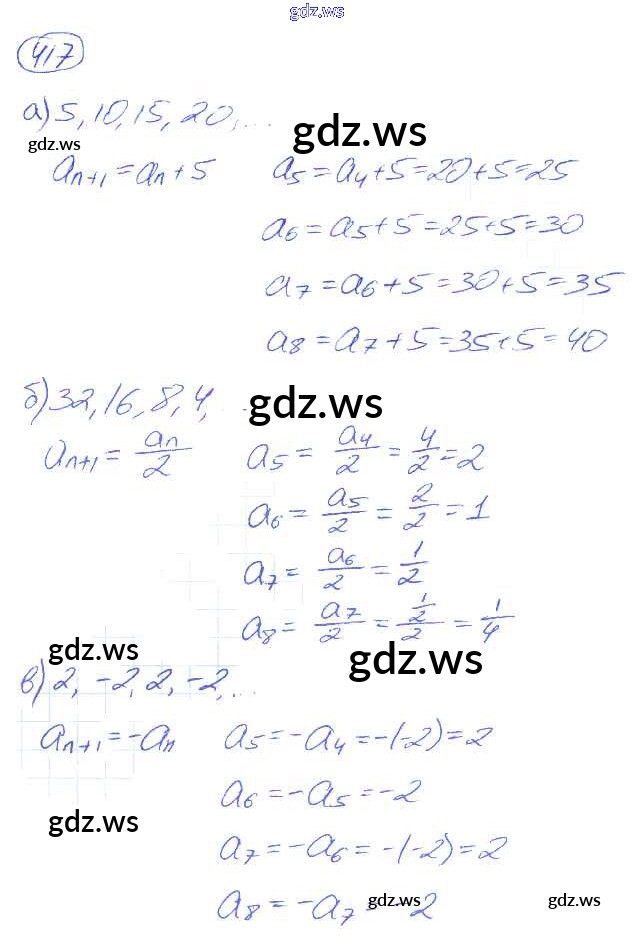 gdz.ws
417
а) 5, 10, 15, 20, ...
gdz.ws
gdz.ws
aₙ₊₁ = aₙ + 5 a₅ = a₄ + 5 = 20 + 5 = 25
a₆ = a₅ + 5 = 25 + 5 = 30
a₇ = a₆ + 5 = 30 + 5 = 35
a₈ = a₇ + 5 = 35 + 5 = 40
б) 32, 16, 8, 4, ...
gdz.ws
aₙ₊₁ = aₙ/2 a₅ = a₄/2 = 4/2 = 2
a₆ = a₅/2 = 2/2 = 1
a₇ = a₆/2 = 1/2
a₈ = a₇/2 = (1/2)/2 = 1/4
gdz.ws
gdz.ws
в) 2, -2, 2, -2, ...
aₙ₊₁ = -aₙ a₅ = -a₄ = -(-2) = 2
a₆ = -a₅ = -2
gdz.ws
a₇ = -a₆ = -(-2) = 2
a₈ = -a₇ = -2
gdz.ws
gdz.ws